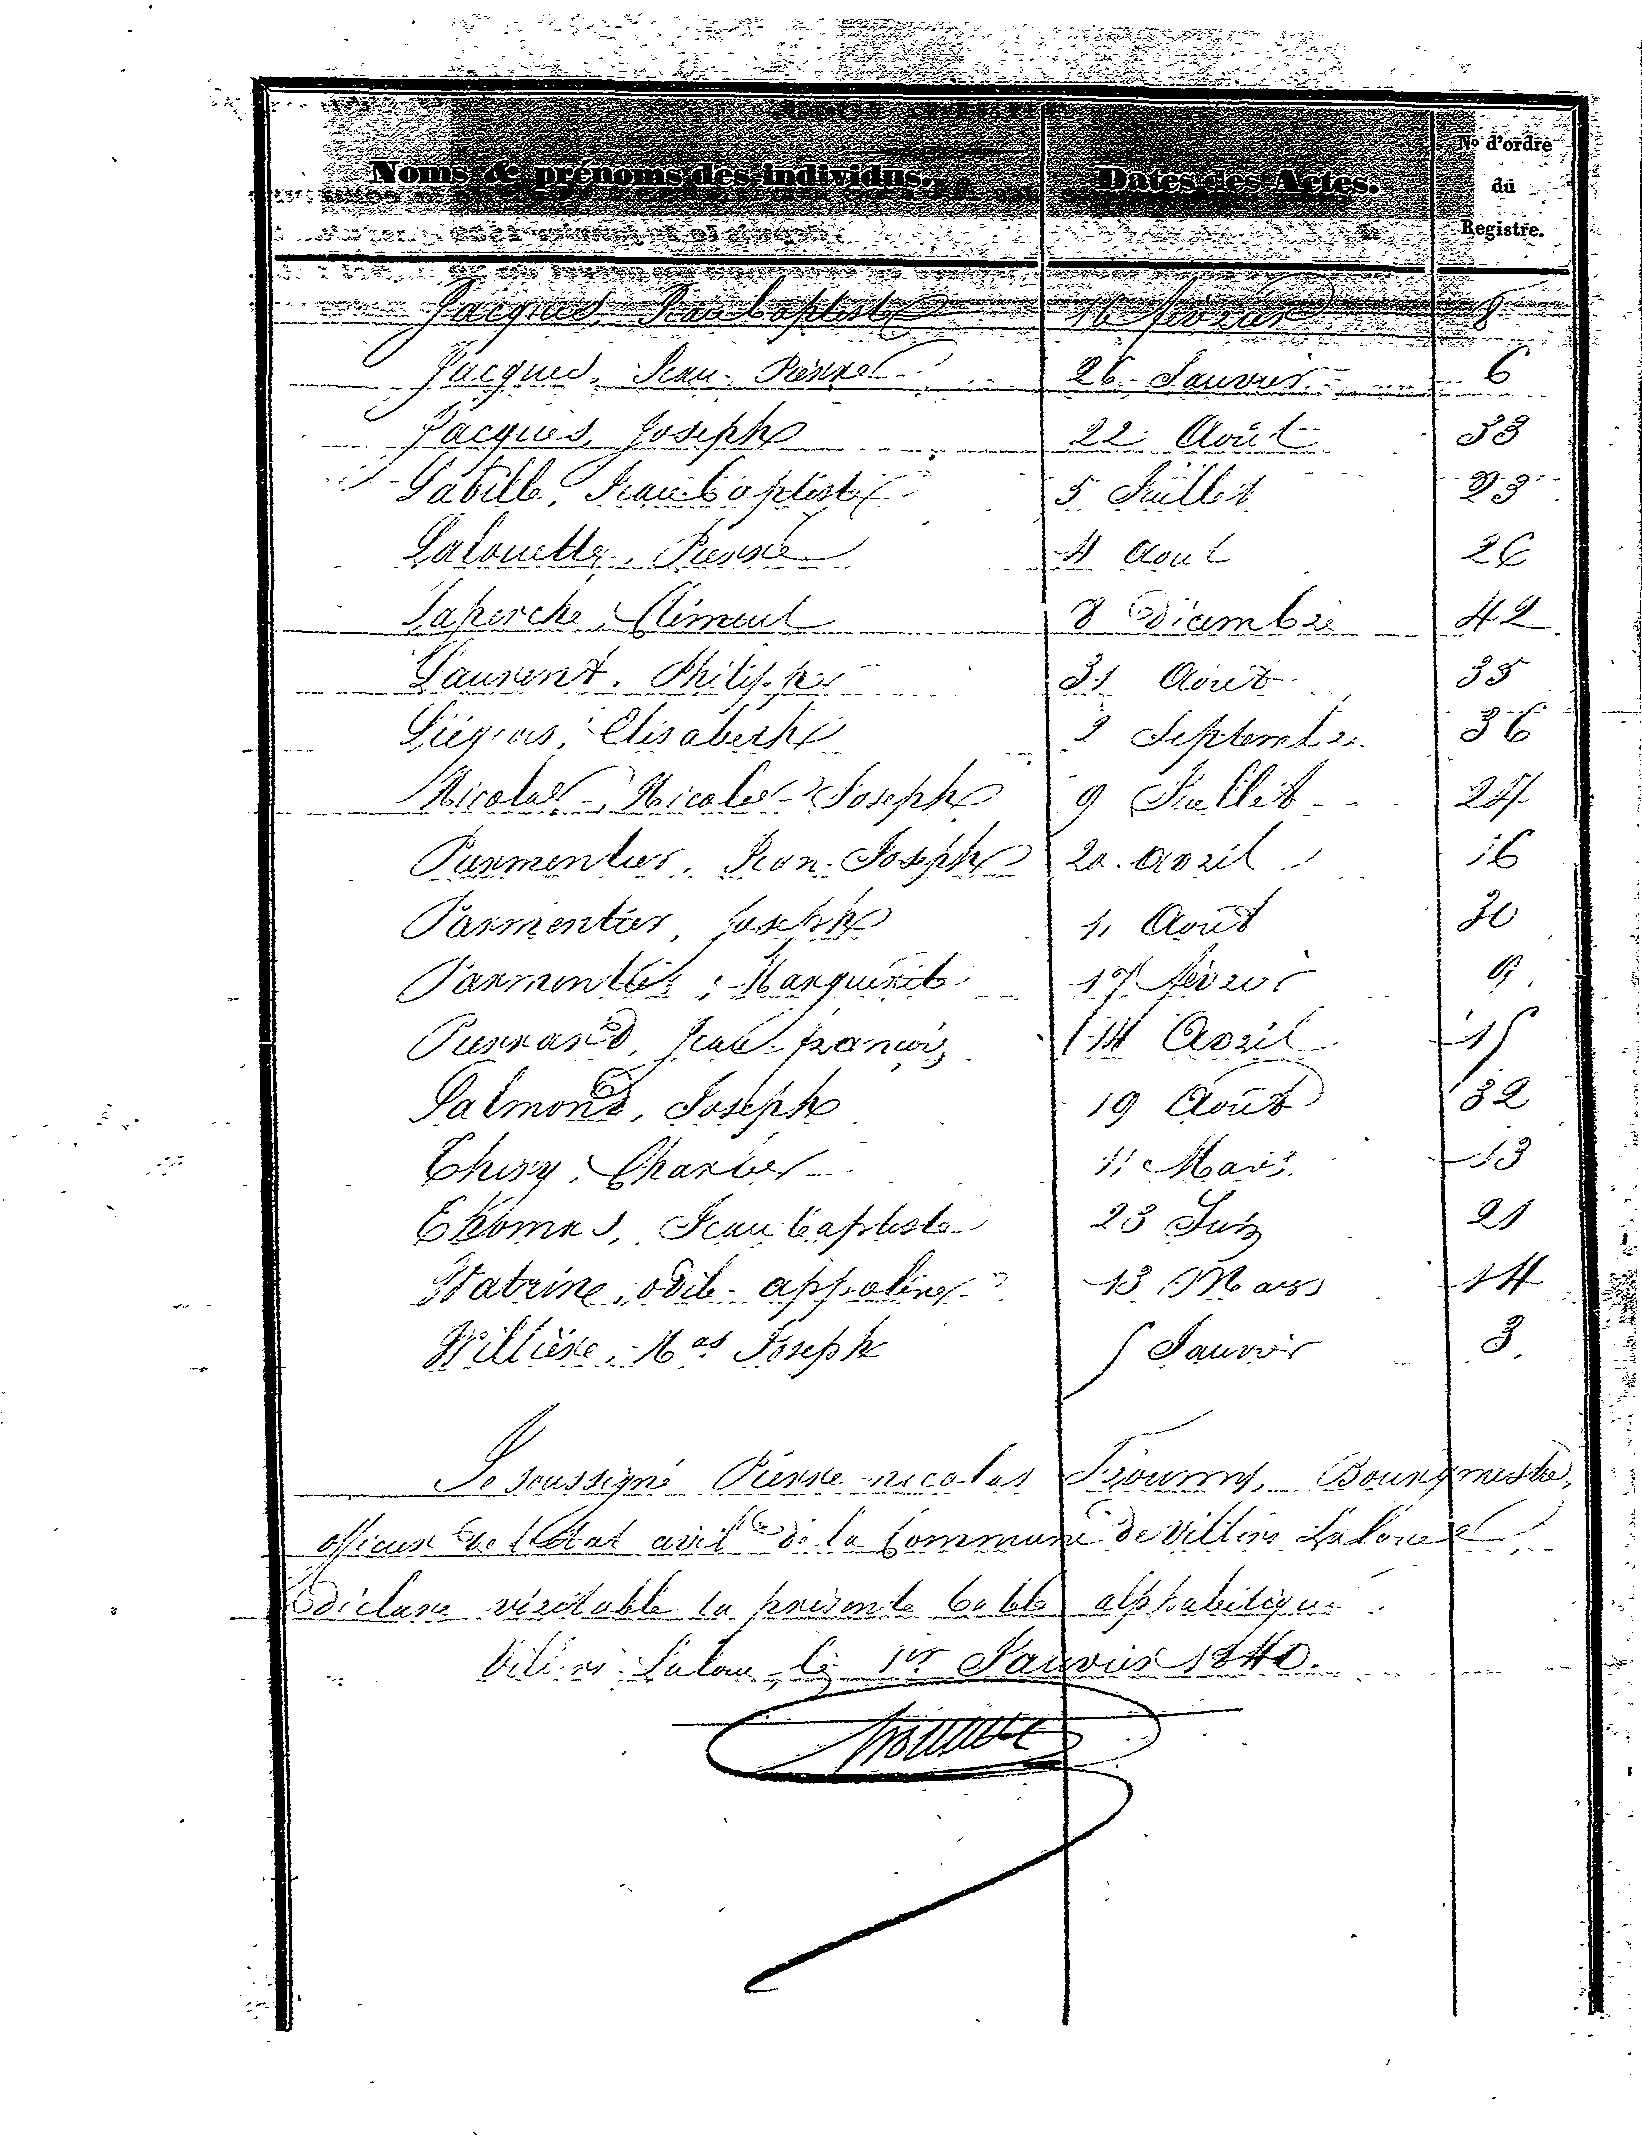 Noms & prénoms des individus. Dates des Actes. No d'ordre
du
Registre.
Jacques, Jean Baptiste 16 février 8
Jacques, Jean-Pierre 26 Janvier 6
Jacques, Joseph 22 Août 33
Labille, Jean Baptiste 5 Juillet 23
Lalouette, Pierre 4 Aout 26
Laperche, Clément 8 Décembre 42
Laurent. Philippe 31 Août 35
Liégeois, Elisabeth 2 Septembre 36
Nicolas, Nicolas-Joseph 9 Juillet 24
Parmentier, Jean-Joseph 20 avril 16
Parmentier, Joseph 11 Août 30
Parmentier, Marguerite 17 février 9
Pierrard, Jean-françois 14 Avril 15
Salmond, Joseph 19 Août 32
Thiry, Charles 11 Mars 13
Thomas, Jean Baptiste 23 Juin 21
Watrine, odile-appoline 13 Mars 14
Willième, Nas Joseph 5 Janvier 3
Je soussigné Pierre-nicolas Bourgmestre,
officier de l'état civil de la Commune de Villers Laloue
déclare véritable la présente table alphabétique.
Villers Laloue, le 1er Janvier 1840.